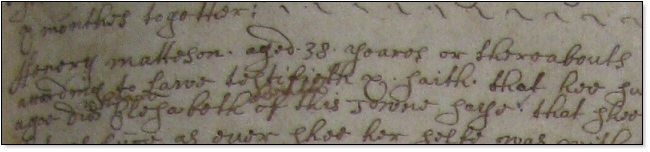 monthes together:
Henery matteson. aged. 38. yeares or thereabouts
to Lawe testifieth &. saith. that hee
agoe did Elesabeth of this Towne saye. that shee
as ever shee her selfe was with